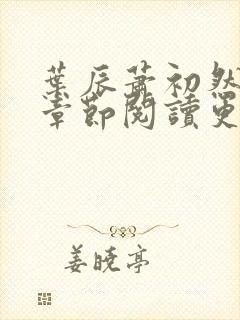 葉辰蕭初然
章節閱讀更
姜曉亭